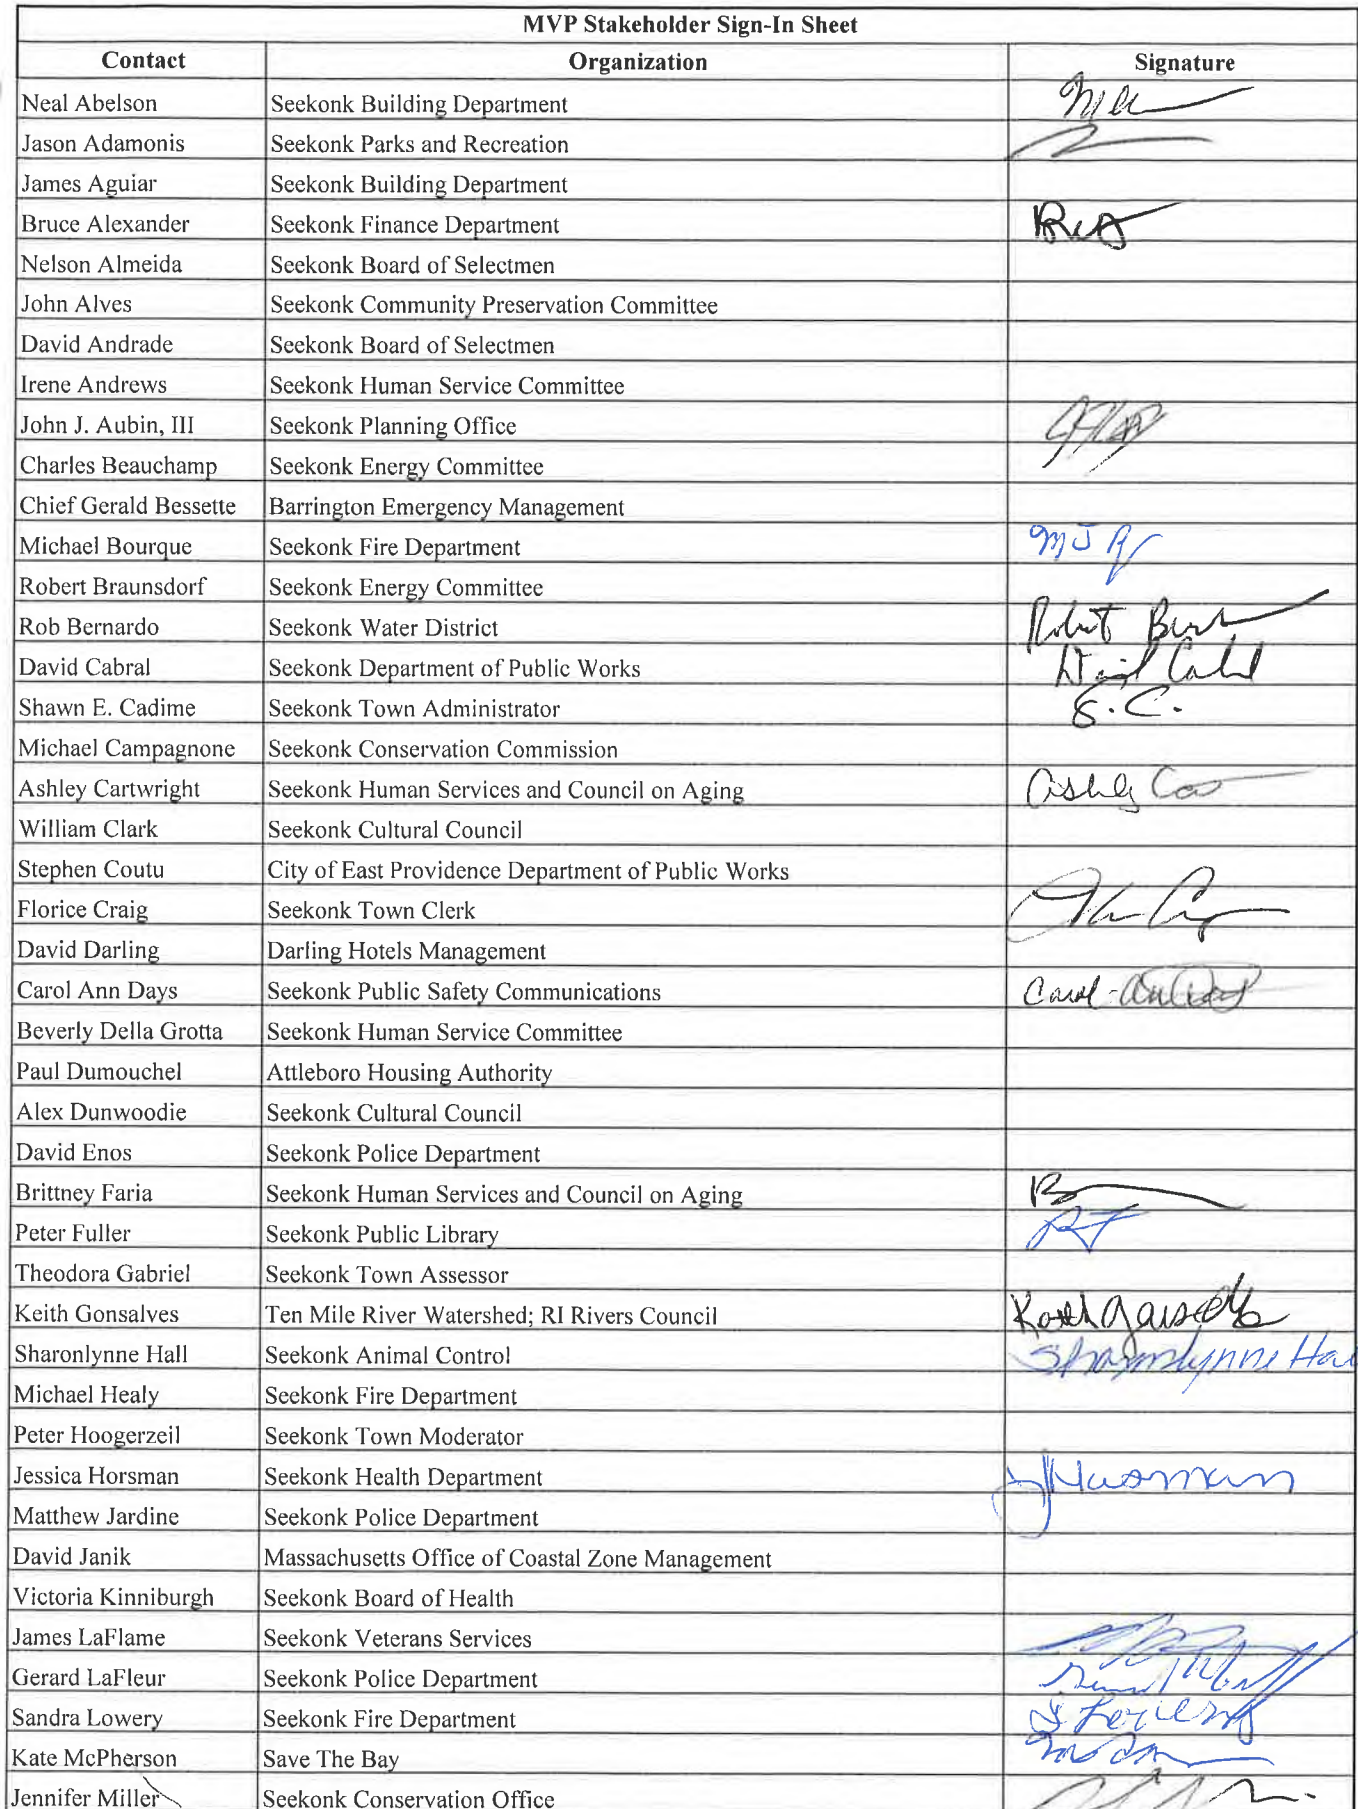 MVP Stakeholder Sign-In Sheet
Contact Organization Signature
Neal Abelson Seekonk Building Department
Jason Adamonis Seekonk Parks and Recreation
James Aguiar Seekonk Building Department
Bruce Alexander Seekonk Finance Department
Nelson Almeida Seekonk Board of Selectmen
John Alves Seekonk Community Preservation Committee
David Andrade Seekonk Board of Selectmen
Irene Andrews Seekonk Human Service Committee
John J. Aubin, III Seekonk Planning Office
Charles Beauchamp Seekonk Energy Committee
Chief Gerald Bessette Barrington Emergency Management
Michael Bourque Seekonk Fire Department
Robert Braunsdorf Seekonk Energy Committee
Rob Bernardo Seekonk Water District
David Cabral Seekonk Department of Public Works
Shawn E. Cadime Seekonk Town Administrator S.C.
Michael Campagnone Seekonk Conservation Commission
Ashley Cartwright Seekonk Human Services and Council on Aging
William Clark Seekonk Cultural Council
Stephen Coutu City of East Providence Department of Public Works
Florice Craig Seekonk Town Clerk
David Darling Darling Hotels Management
Carol Ann Days Seekonk Public Safety Communications
Beverly Della Grotta Seekonk Human Service Committee
Paul Dumouchel Attleboro Housing Authority
Alex Dunwoodie Seekonk Cultural Council
David Enos Seekonk Police Department
Brittney Faria Seekonk Human Services and Council on Aging
Peter Fuller Seekonk Public Library
Theodora Gabriel Seekonk Town Assessor
Keith Gonsalves Ten Mile River Watershed; RI Rivers Council
Sharonlynne Hall Seekonk Animal Control Sharonlynne Hal
Michael Healy Seekonk Fire Department
Peter Hoogerzeil Seekonk Town Moderator
Jessica Horsman Seekonk Health Department
Matthew Jardine Seekonk Police Department
David Janik Massachusetts Office of Coastal Zone Management
Victoria Kinniburgh Seekonk Board of Health
James LaFlame Seekonk Veterans Services
Gerard LaFleur Seekonk Police Department
Sandra Lowery Seekonk Fire Department
Kate McPherson Save The Bay
Jennifer Miller Seekonk Conservation Office